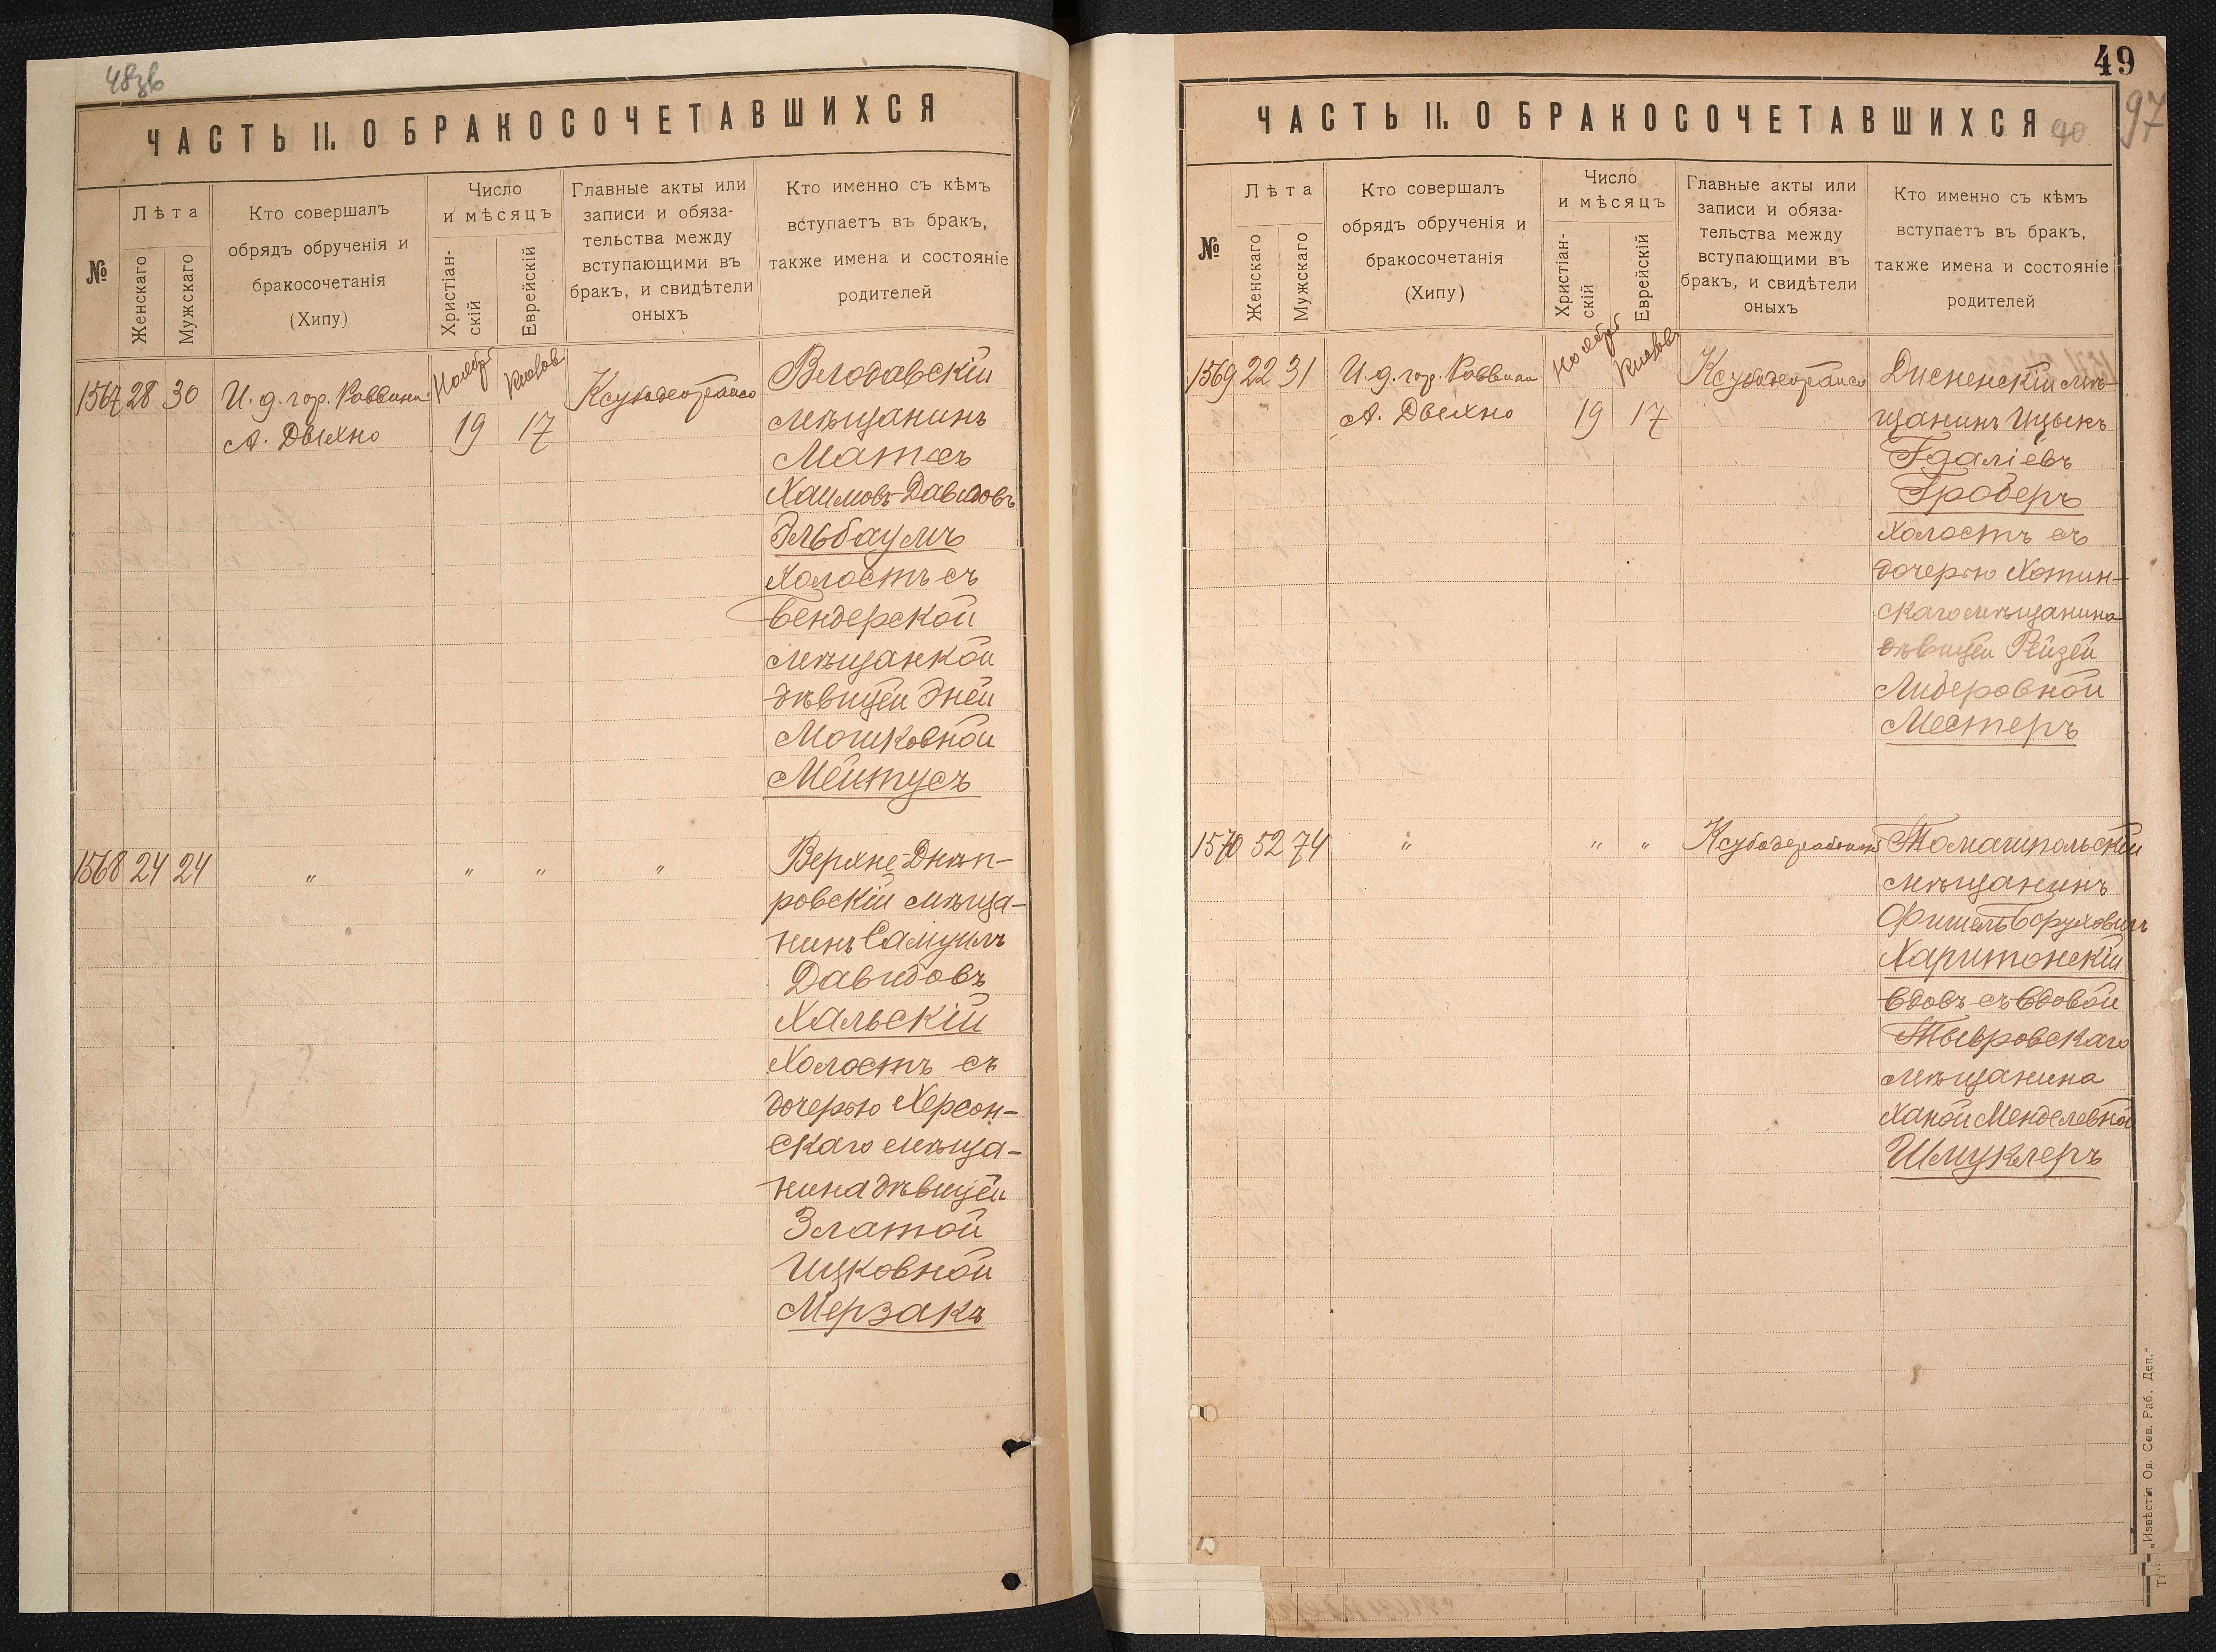 48зв
ЧАСТЬ II. О БРАКОСОЧЕТАВШИХСЯ
№
Лѣта
Женскаго
Мужскаго
Кто совершалъ
обрядъ обрученія и
бракосочетанія
(Хипу)
Число
и мѣсяцъ
Христіан-
скій
Еврейскій
Главные акты или
записи и обяза-
тельства между
вступающими въ
бракъ, и свидѣтели
оныхъ
Кто именно съ кѣмъ
вступаетъ въ бракъ,
также имена и состояніе
родителей
1567 28 30
И. д. гор. Раввина
А. Дыхно
Ноябр
19
Кислов
17
Влодавскій
мѣщанинъ
Матес
Хаимовъ-Давидовъ
Эльбаумъ
холостъ съ
Бендерской
мѣщанкой
дѣвицей Эней
Мошковной
Мейтусъ
1568 24 24
"
"
"
"
Верхне-Днѣп-
ровскій мѣща-
нинъ Самуилъ
Давидовъ
Хальскій
холостъ съ
дочерью Херсон-
скаго мѣща-
нина дѣвицей
Златой
Ицковной
Мерзакъ
49
97
ЧАСТЬ II. О БРАКОСОЧЕТАВШИХСЯ
40
№
Лѣта
Женскаго
Мужскаго
Кто совершалъ
обрядъ обрученія и
бракосочетанія
(Хипу)
Число
и мѣсяцъ
Христіан-
скій
Еврейскій
Главные акты или
записи и обяза-
тельства между
вступающими въ
бракъ, и свидѣтели
оныхъ
Кто именно съ кѣмъ
вступаетъ въ бракъ,
также имена и состояніе
родителей
1569 22 31
И. д. гор. Раввина
А. Дыхно
Ноябр
19
Кислов
17
Дисненскій мѣ-
щанинъ Ицыкъ
Гдаліевъ
Гроберъ
холостъ съ
дочерью Хотин-
скаго мѣщанина
дѣвицей Рейзей
Лидеровной
Местеръ
1570 52 74
"
"
"
Томашпольскій
мѣщанинъ
Фишель Боруховичъ
Харитонскій
вдовъ съ вдовой
Тывровскаго
мѣщанина
Ханой Менделевной
Шмуклеръ
„Извѣстія Од. Сов. Раб. Деп."